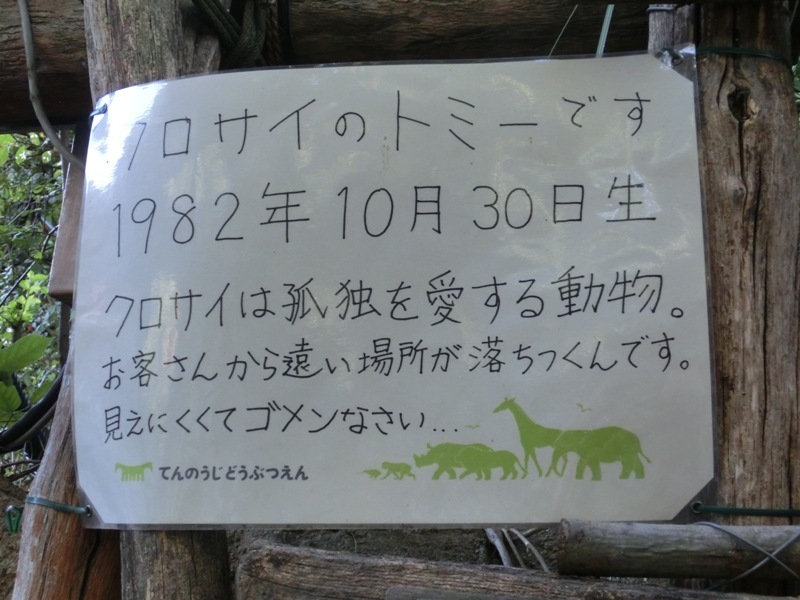 クロサイのトミーです
1982年10月30日生
クロサイは孤独を愛する動物。
お客さんから遠い場所が落ちつくんです。
見えにくくてゴメンなさい...
てんのうじどうぶつえん